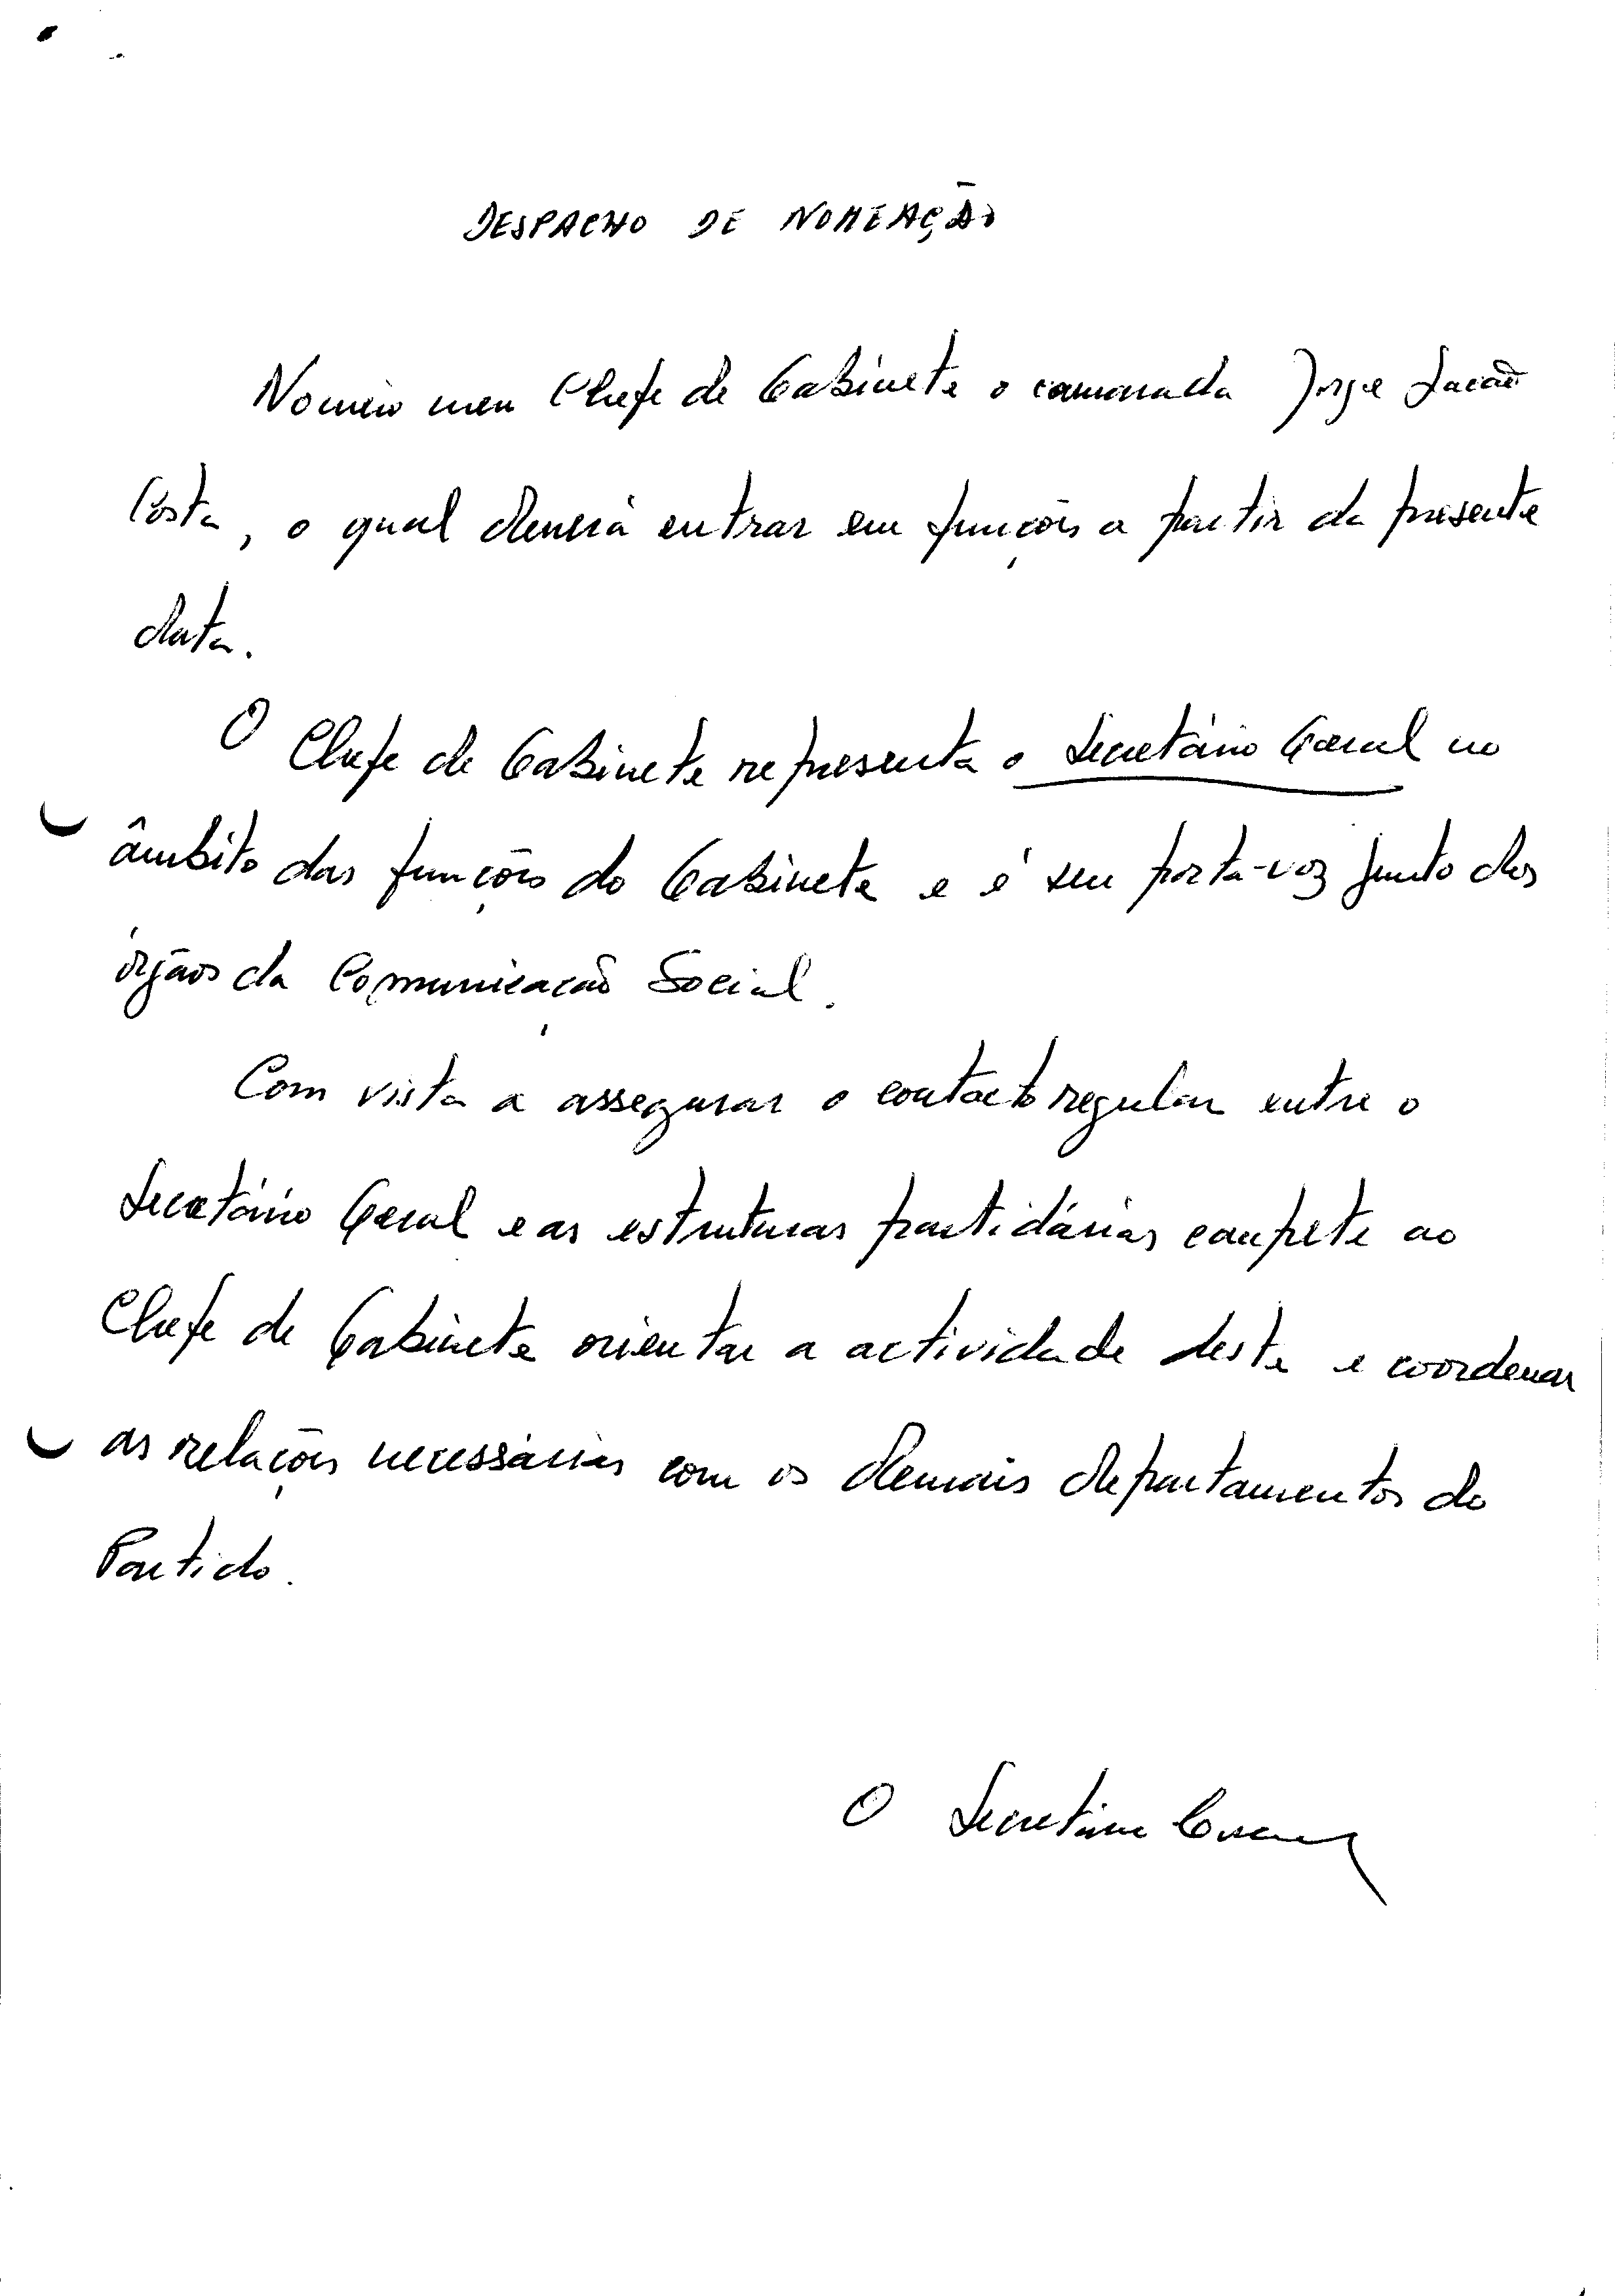 DESPACHO DE NOMEAÇÃO
Nomeio meu Chefe de Gabinete o camarada Jorge Lacão
Costa, o qual deverá entrar em funções a partir da presente
data.
O Chefe de Gabinete representa o Secretário Geral no
âmbito das funções do Gabinete e é seu porta-voz junto dos
órgãos da Comunicação Social.
Com vista a assegurar o contacto regular entre o
Secretário Geral e as estruturas partidárias compete ao
Chefe de Gabinete orientar a actividade deste e coordenar
as relações necessárias com os demais departamentos do
Partido.
O Secretário Geral